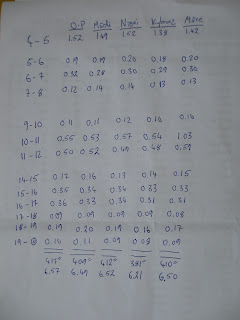 O.P Modi Nyoni Kybane Mere
4 - 5 1.52 1.49 1.52 1.38 1.42
5-6 0.19 0.19 0.20 0.18 0.20
6-7 0.32 0.28 0.30 0.29 0.30
7-8 0.12 0.14 0.14 0.13 0.13
9-10 0.11 0.11 0.12 0.16 0.16
10-11 0.55 0.53 0.57 0.54 1.03
11-12 0.50 0.52 0.49 0.48 0.59
14-15 0.17 0.16 0.13 0.14 0.15
15-16 0.35 0.34 0.34 0.33 0.33
16-17 0.36 0.33 0.34 0.31 0.31
17-18 0.09 0.09 0.09 0.09 0.08
18-19 0.19 0.20 0.19 0.16 0.17
19- 0.10 0.11 0.09 0.08 0.09
417° 409° 412° 381° 410°
6.57 6.49 6.52 6.21 6.50